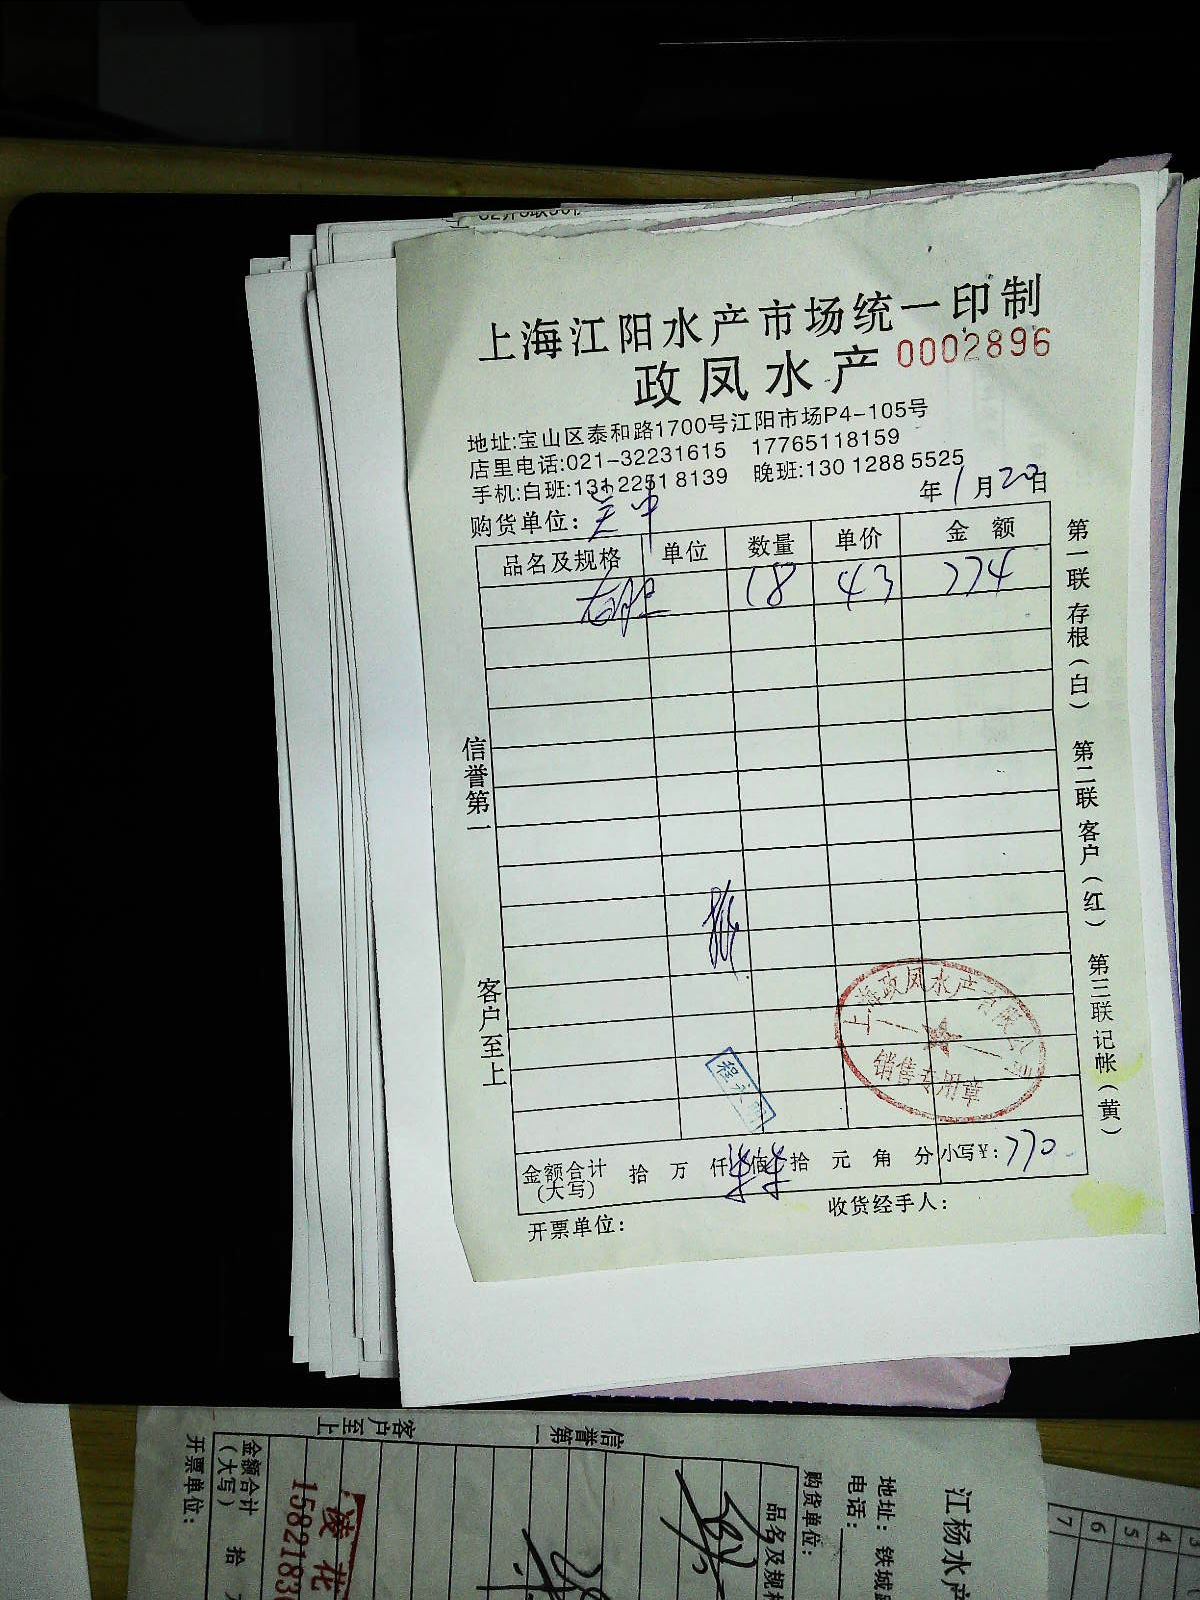 上海江阳水产市场统一印制
政凤水产 0002896
地址:宝山区泰和路1700号江阳市场P4-105号
店里电话:021-32231615 17765118159
手机:白班:131 2251 8139 晚班:130 1288 5525
年1月20日
购货单位:
品名及规格 单位 数量 单价 金 额
18 43 774
信誉第一
客户至上
第一联存根(白) 第二联客户(红) 第三联记帐(黄)
上海政凤水产有限公司
销售专用章
金额合计 拾 万 仟 佰 拾 元 角 分 小写¥: 770
(大写)
开票单位: 收货经手人:
江杨水产
地址: 铁城
电话:
购货单位:
品名及规格
信誉第一
客户至上
金额合计 拾
(大写)
开票单位:
凌花
1582183
4
5
6
7